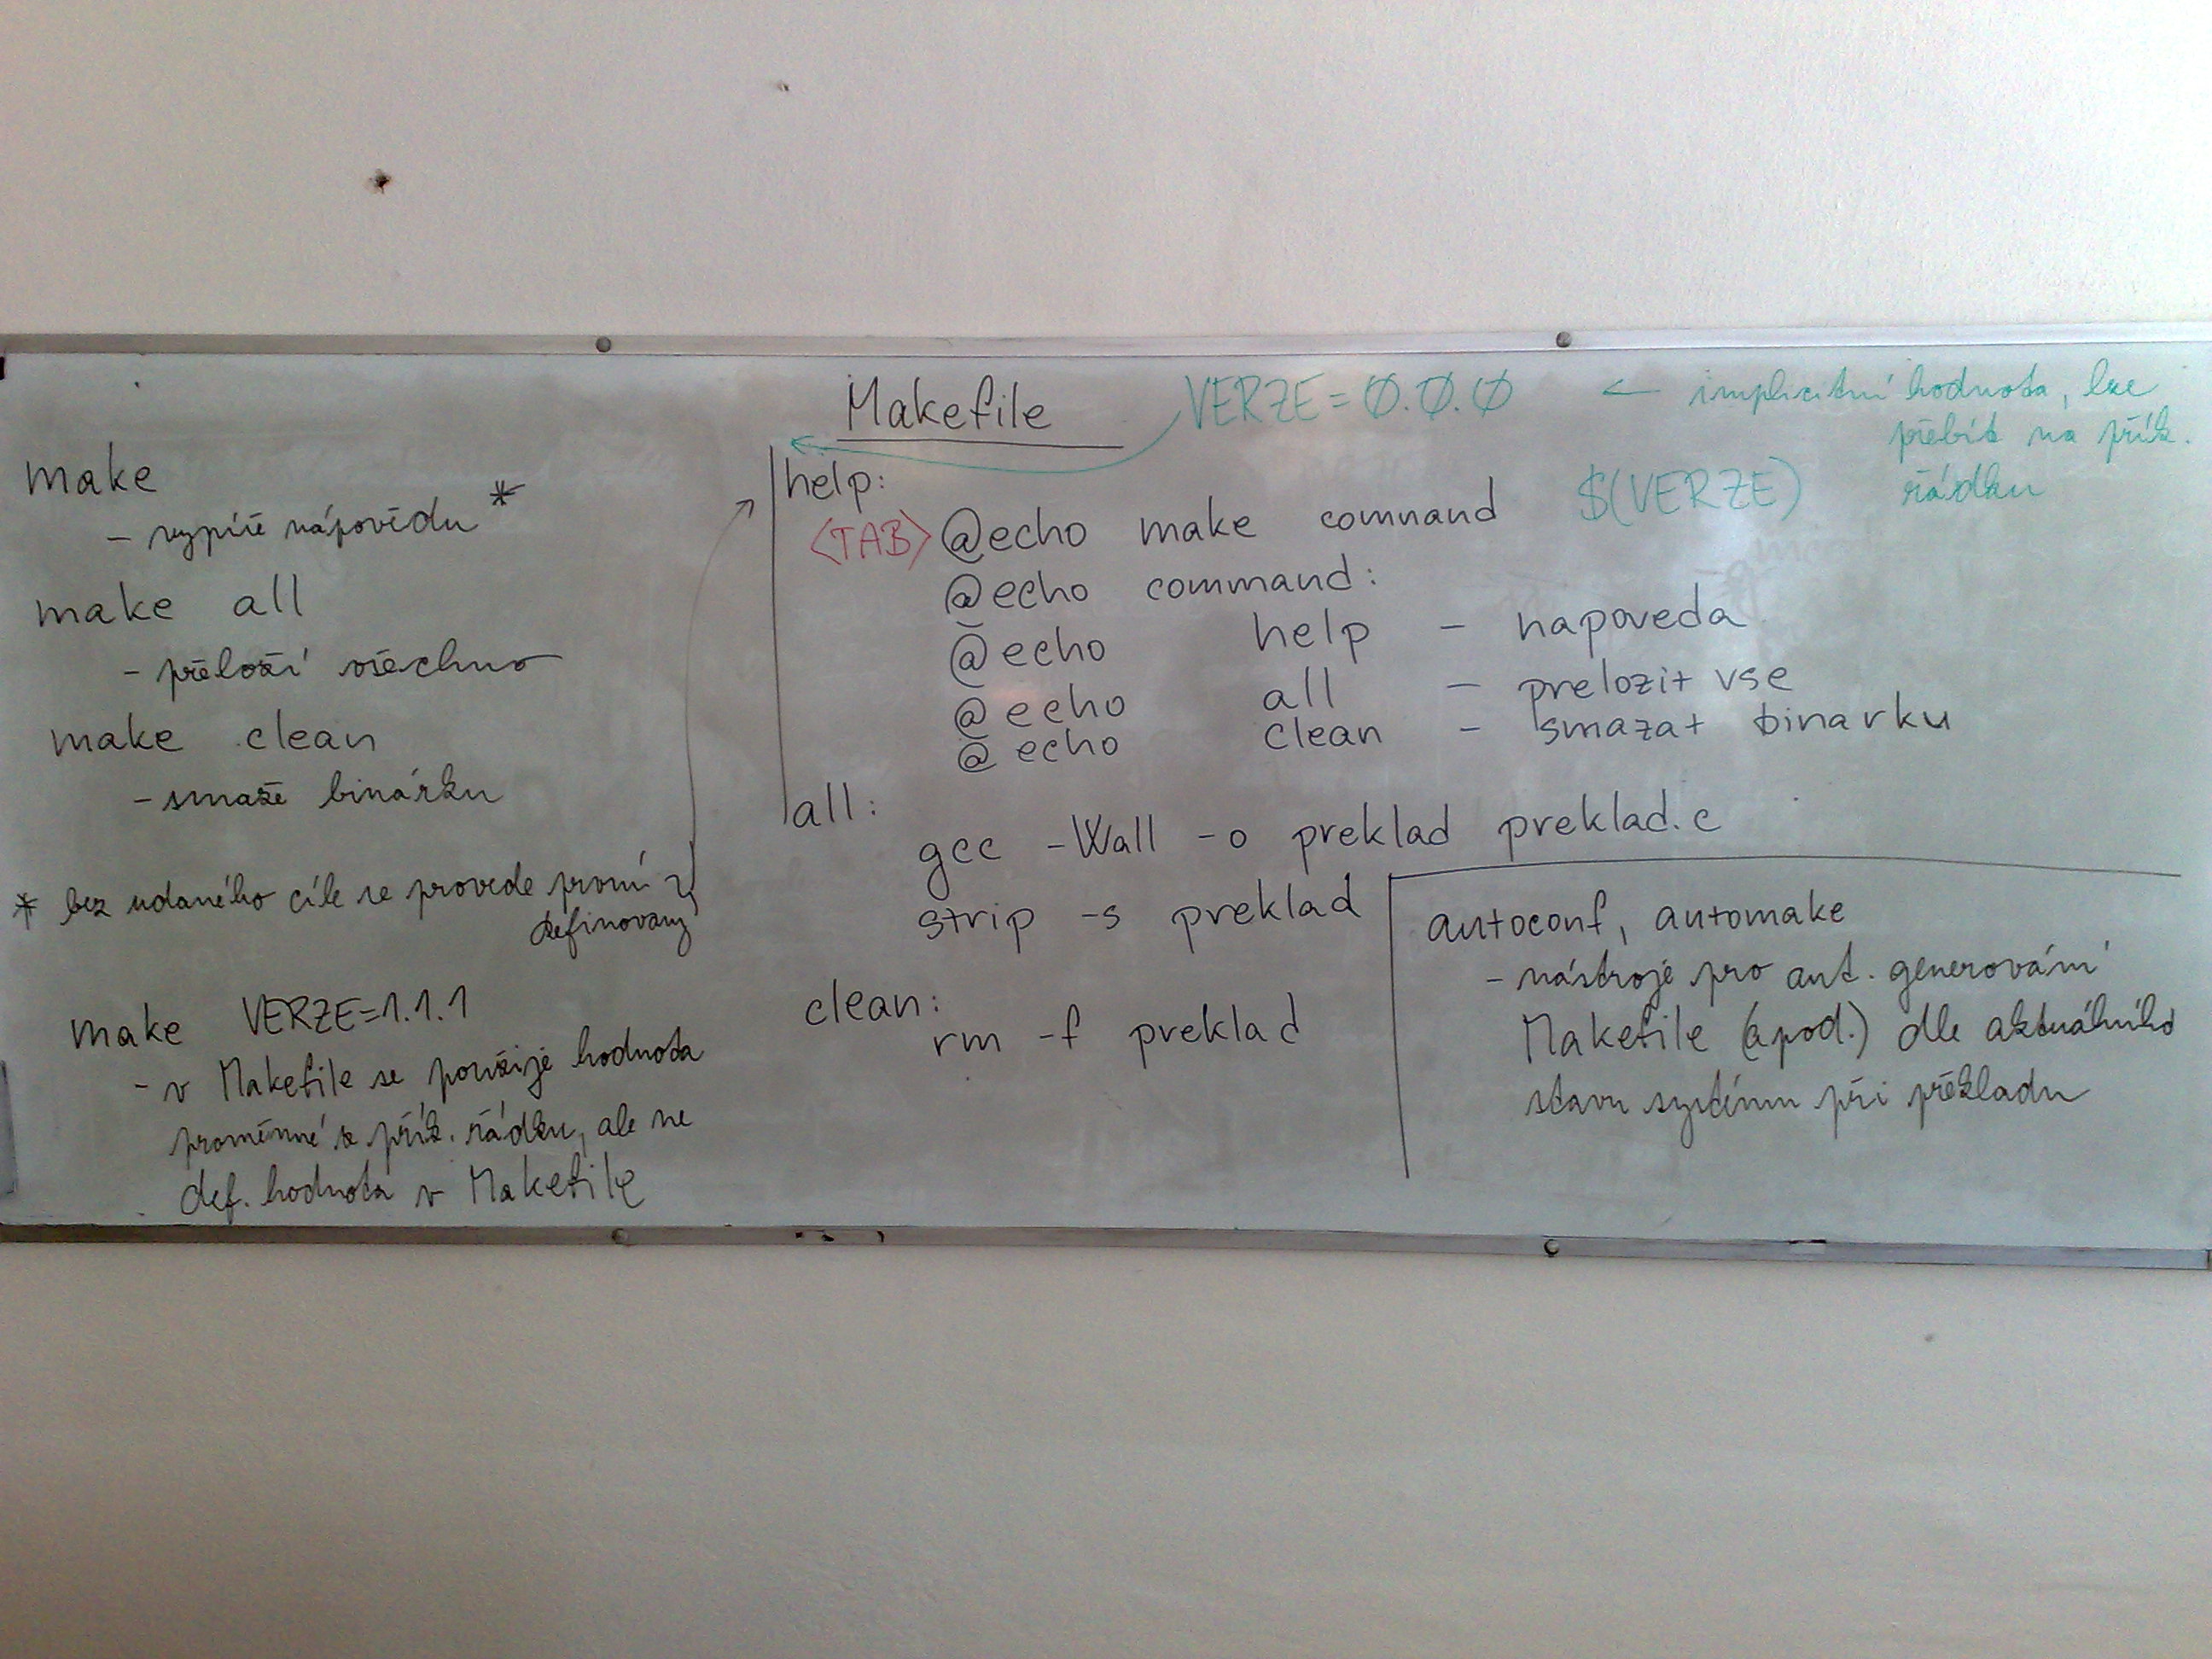 make
- vypíše nápovědu *
make all
- přeloží všechno
make clean
- smaže binárku
* bez udaného cíle se provede první
definovaný
make VERZE=1.1.1
- v Makefile se použije hodnota
proměnné z přík. řádku, ale ne
def. hodnota v Makefile
Makefile
VERZE=0.0.0 ← implicitní hodnota, lze
přebít na přík.
řádku
help:
<TAB> @echo make command $(VERZE)
@echo command:
@echo help - napoveda
@echo all - prelozit vse
@echo clean - smazat binarku
all:
gcc -Wall -o preklad preklad.c
strip -s preklad
clean:
rm -f preklad
autoconf, automake
- nástroje pro aut. generování
Makefile (apod.) dle aktuálního
stavu systému při překladu